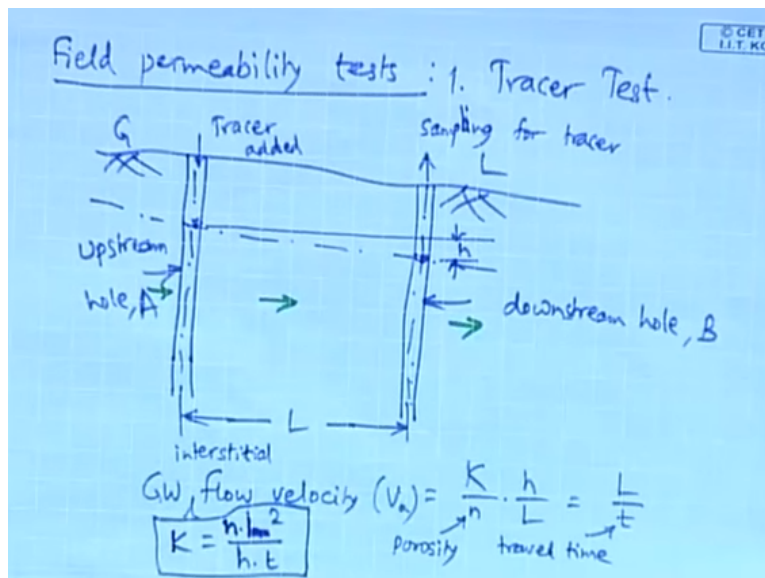 © CET
I.I.T. KG
Field permeability tests : 1. Tracer Test.
G
Tracer added
Sampling for tracer
L
h
Upstream hole, A
downstream hole, B
L
interstitial
GW flow velocity (Va) = K/n · h/L = L/t
porosity
travel time
K = n·L²/h·t